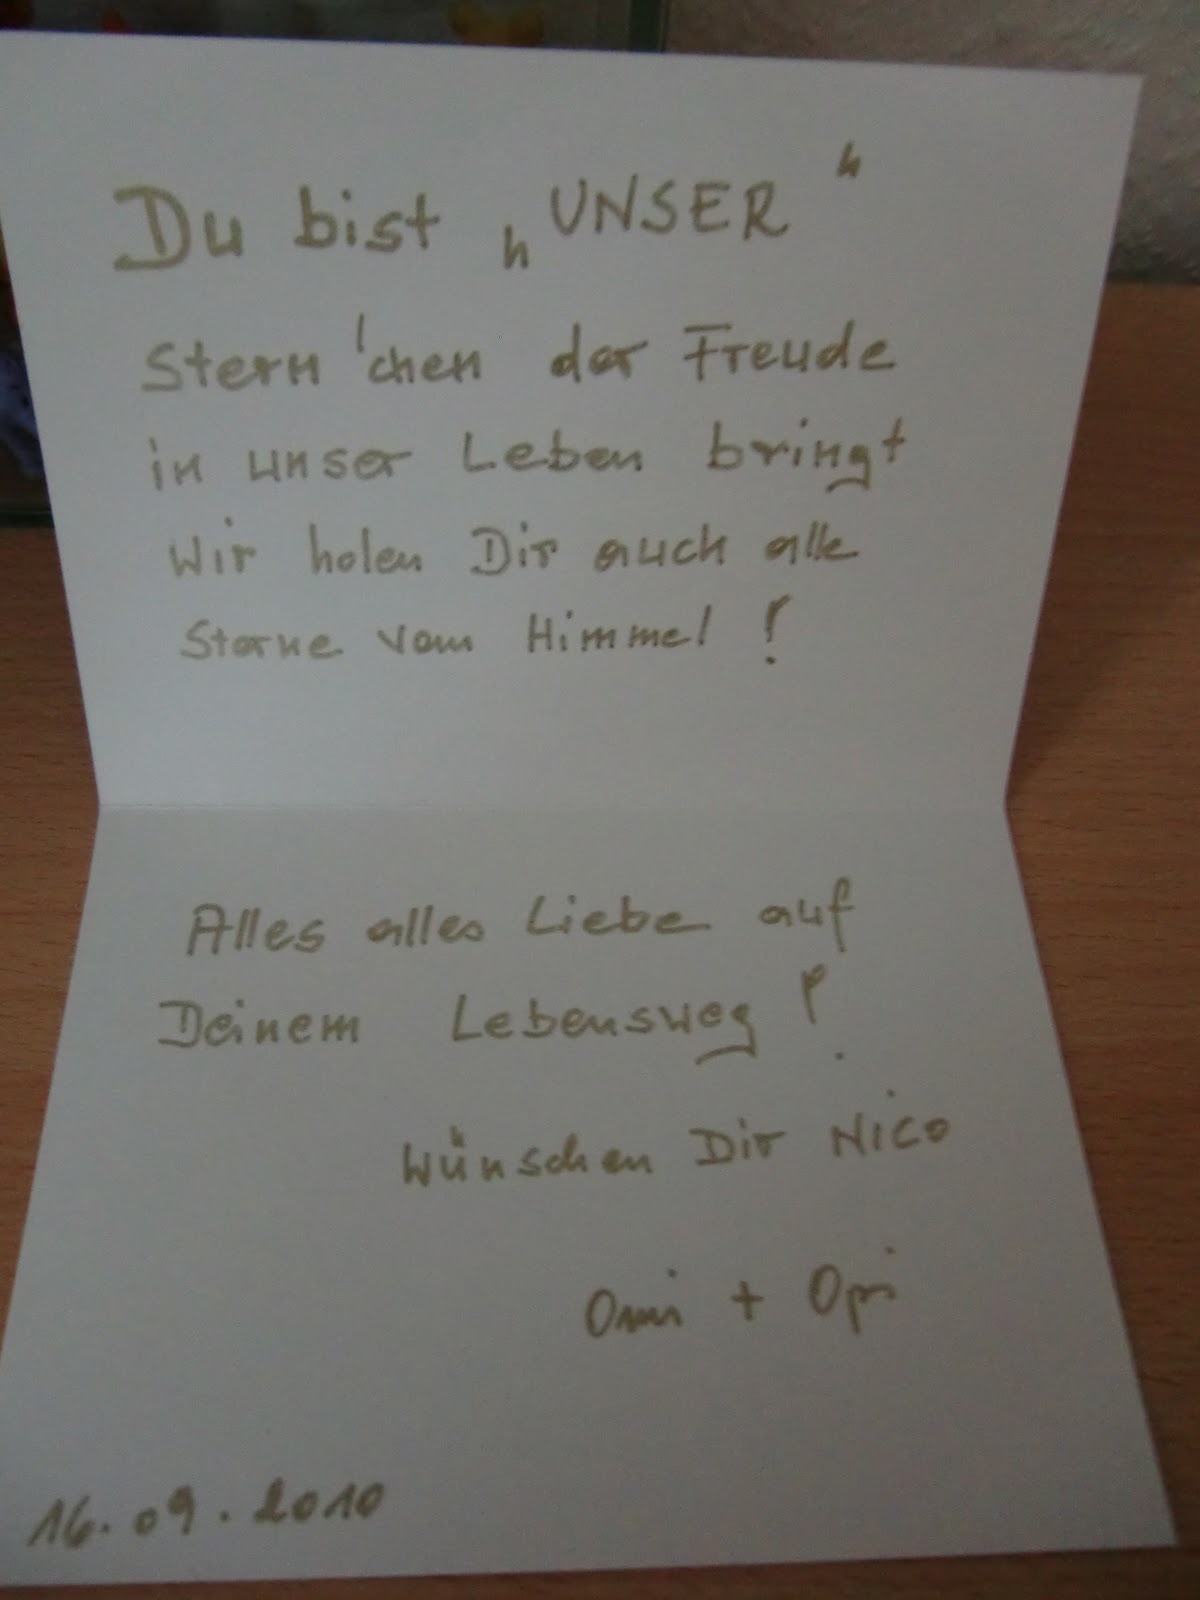 Du bist „UNSER“
Stern'chen der Freude
in unser Leben bringt
Wir holen Dir auch alle
Sterne vom Himmel !
Alles alles Liebe auf
Deinem Lebensweg !
Wünschen Dir Nico
Omi + Opi
16.09.2010